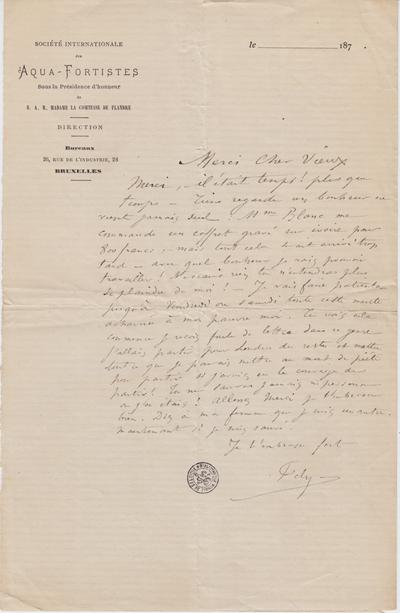 SOCIÉTÉ INTERNATIONALE
des
AQUA-FORTISTES
Sous la Présidence d'honneur
de
S. A. R. MADAME LA COMTESSE DE FLANDRE
DIRECTION
Bureaux
26, RUE DE L'INDUSTRIE, 26
BRUXELLES
le 187
Merci Cher Vieux
Merci, il était temps! plus que
temps - Tiens regarde un bonheur ne
vient jamais seul! Mme Blanc me
commande un coffret gravé sur ivoire pour
800 francs, mais tout cela serait arrivé trop
tard - avec quel bonheur je vais pouvoir
travailler! tu n'entendras plus
se plaindre de moi! - Je vais faire
jusqu'à Vendredi ou samedi toute cette meute
acharnée à moi pauvre moi. Tu vois cela
commence je reçois foule de lettres dans ce genre
J'allais partir pour Londres du reste et mettre
tout ce que je pouvais mettre au mont de piété
pour partir si j'avais eu le courage de
partir! Tu ne sauras jamais ni personne
où j'en étais! Allons Merci je t'embrasse
bien. Dis à ma femme que je suis un autre
maintenant si je suis sauvé.
Je t'embrasse fort
Fély